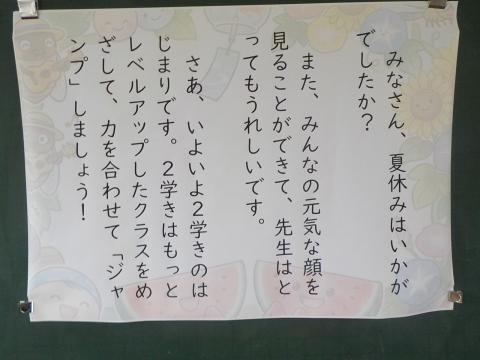 みなさん、夏休みはいかが
でしたか？
また、みんなの元気な顔を
見ることができて、先生はと
ってもうれしいです。
さあ、いよいよ２学きのは
じまりです。２学きはもっと
レベルアップしたクラスをめ
ざして、力を合わせて「ジャ
ンプ」しましょう！